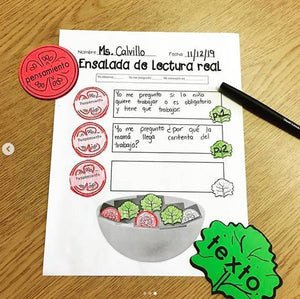 Nombre: Ms. Calvillo Fecha: 11/12/19
Ensalada de lectura real
pensamiento
Yo me pregunto si la niña
quiere trabajar o es obligatorio
y tiene que trabajar.
p.1
Yo me pregunto ¿por qué la
mamá llega contenta del
trabajo?
p.2
texto